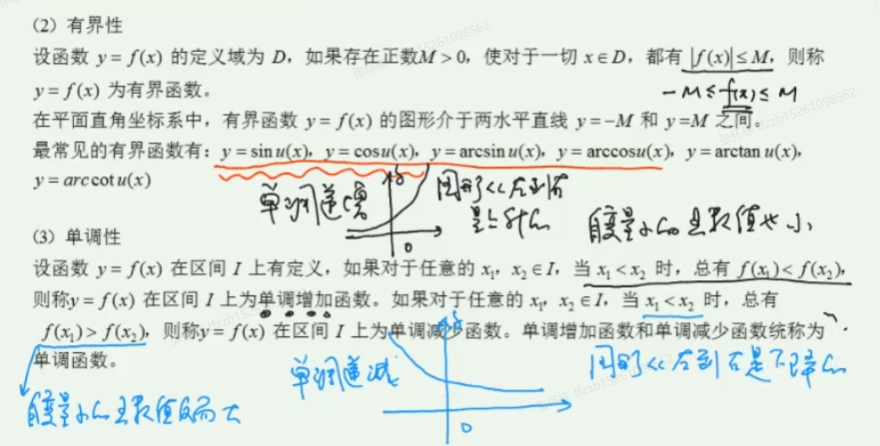 （2）有界性
设函数 y = f(x) 的定义域为 D，如果存在正数M > 0，使对于一切 x∈D，都有 |f(x)|≤M，则称
y = f(x) 为有界函数。
－M ≤ f(x) ≤ M
在平面直角坐标系中，有界函数 y = f(x) 的图形介于两水平直线 y=−M 和 y=M 之间。
最常见的有界函数有：y = sin u(x)，y = cosu(x)，y = arcsin u(x)，y = arccosu(x)，y = arctan u(x)，
y = arc cot u(x)
单调递增
图形从左到右
是上升的
0
自变量小的函数值也小
（3）单调性
设函数 y = f(x) 在区间 I 上有定义，如果对于任意的 x₁，x₂∈I，当 x₁<x₂ 时，总有 f(x₁)< f(x₂)，
则称y = f(x) 在区间 I 上为单调增加函数。如果对于任意的 x₁，x₂∈I，当 x₁<x₂ 时，总有
f(x₁)> f(x₂)，则称y = f(x) 在区间 I 上为单调减少函数。单调增加函数和单调减少函数统称为
单调函数。
单调递减
图形从左到右是下降的
自变量小的函数值反而大
0